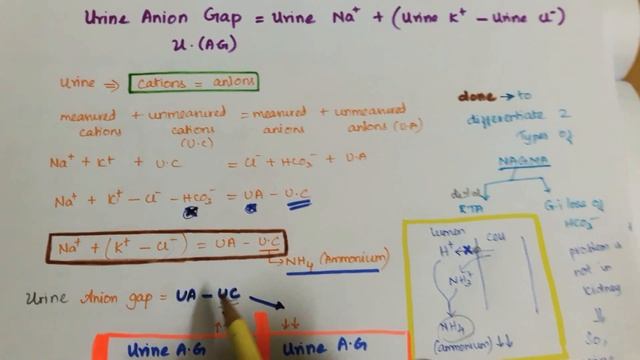 Urine Anion Gap = Urine Na⁺ + (Urine K⁺ - Urine Cl⁻)
U.(AG)
Urine ⇒ cations = anions
measured cations + unmeasured cations (U.C) = measured anions + unmeasured anions (U.A)
Na⁺ + K⁺ + U.C = Cl⁻ + HCO₃⁻ + U.A
Na⁺ + K⁺ - Cl⁻ - HCO₃⁻ = UA - U.C
Na⁺ + (K⁺ - Cl⁻) = UA - U.C
↳ NH₄ (Ammonium)
Urine Anion gap = UA - UC →
↑
↓↓
Urine A.G
Urine A.G
done → to
differentiate 2
Types of
NAGMA
distal
RTA
G.i loss of
HCO₃⁻
problem is
not in
kidney
⇓
So,
lumen
cell
H⁺
NH₃
NH₄
(ammonium) ↓↓